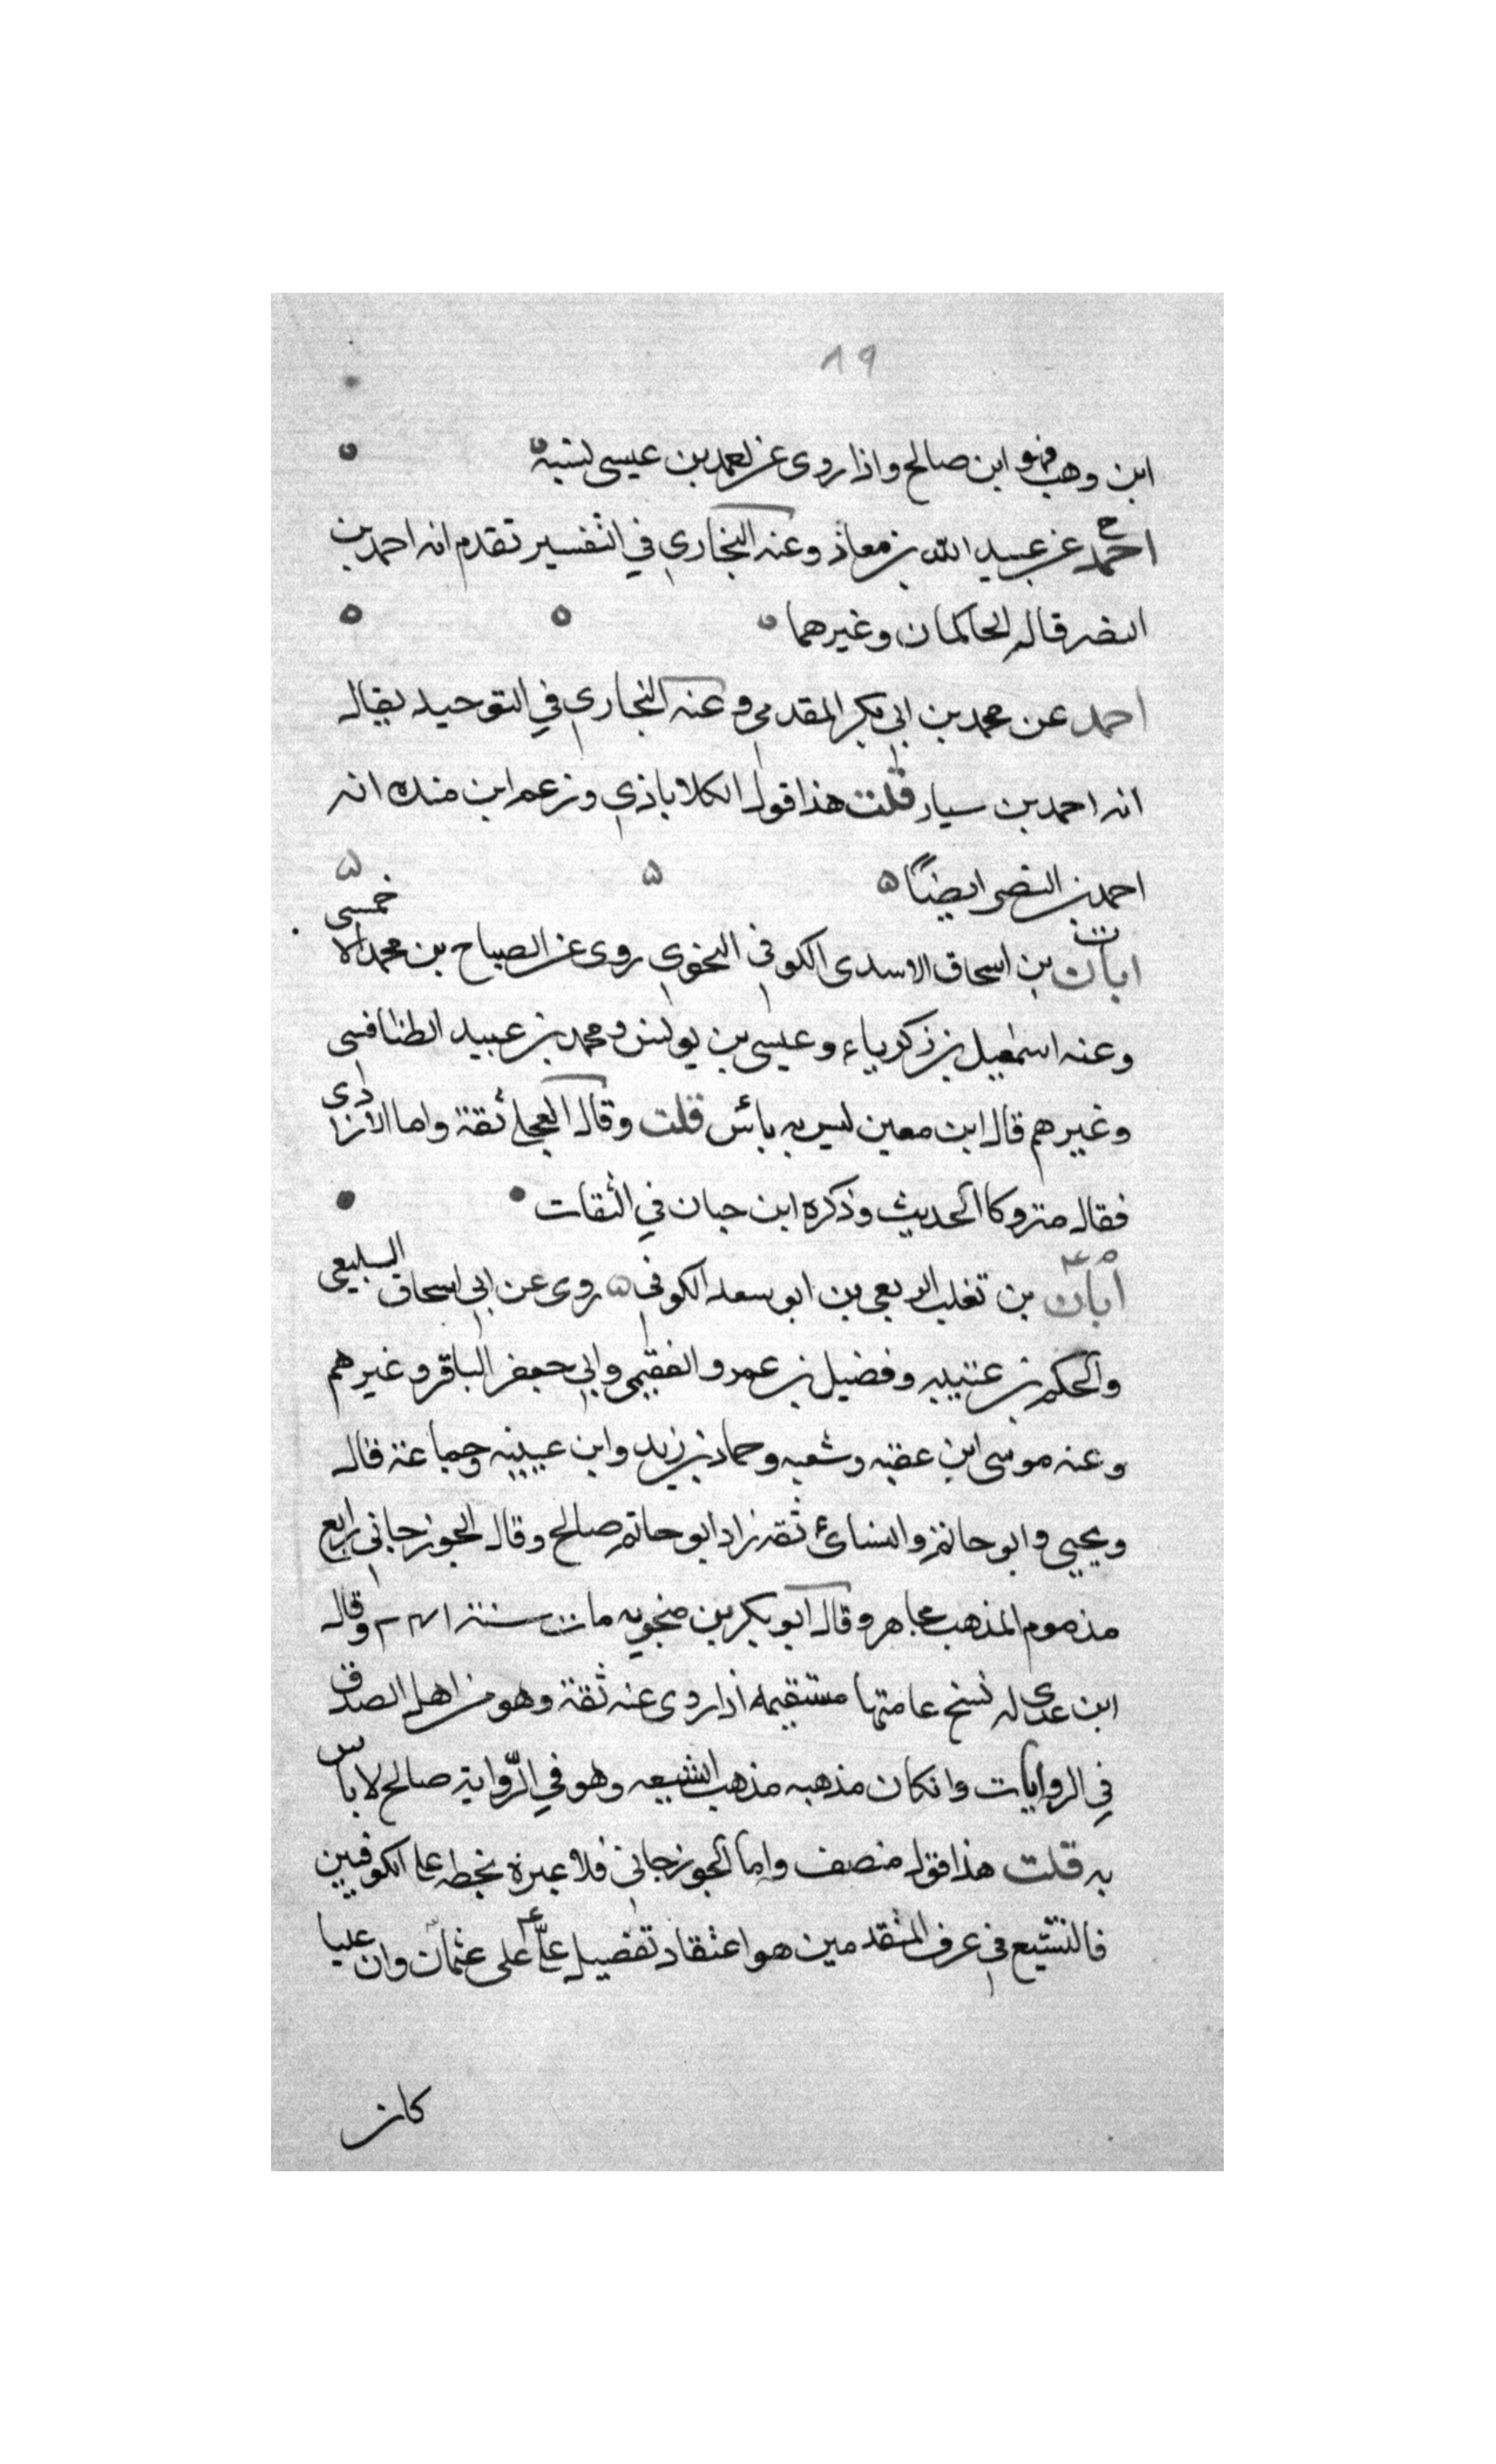 ٨٩
ابن وهب فهو ابن صالح واذا روى عن احمد بن عيسى نسبه
احمد عن عبيد الله بن معاذ وعنه البخاري في التفسير تقدم انه احمد بن
النضر قاله الحاكمان وغيرهما
احمد عن محمد بن ابي بكر المقدمي وعنه البخاري في التوحيد يقال
انه احمد بن سيار قلت هذا قول الكلاباذي وزعم ابن منده انه
احمد بن النضر ايضًا
ت ابان بن اسحاق الاسدى الكوفي النحوي روى عن الصباح بن محمد الاحمسى
وعنه اسمعيل بن زكرياء وعيسى بن يونس ومحمد بن عبيد الطنافسى
وغيرهم قال ابن معين ليس به بائس قلت وقال العجلي ثقة واما الازدى
فقال متروكا الحديث وذكره ابن حبان في الثقات
م عه ابان بن تغلب الربعي بن ابو سعد الكوفي روى عن ابي اسحاق السبيعي
والحكم بن عتيبه وفضيل بن عمرو الفقيمي وابي جعفر الباقر وغيرهم
وعنه موسى ابن عقبه وشعبه وحماد بن زيد وابن عيينه وجماعة قال
ويحيى وابو حاتم والنسائ ثقه زاد ابو حاتم صالح وقال الجوزجاني زايع
مذموم المذهب مجاهر وقال ابو بكر بن منجويه مات سنة ١٤١ م وقال
ابن عدى له نسخ عامتها مستقيمه اذا روى عنه ثقة وهو من اهل الصدق
في الروايات وانكان مذهبه مذهب الشيعه وهو في الرّواية صالح لا باس
به قلت هذا قول منصف واما الجوزجاني فلا عبرة بحطه على الكوفيين
فالتشيع في عرف المتقدمين هو اعتقاد تفضيل عليّ على عثمان وان عليا
كان